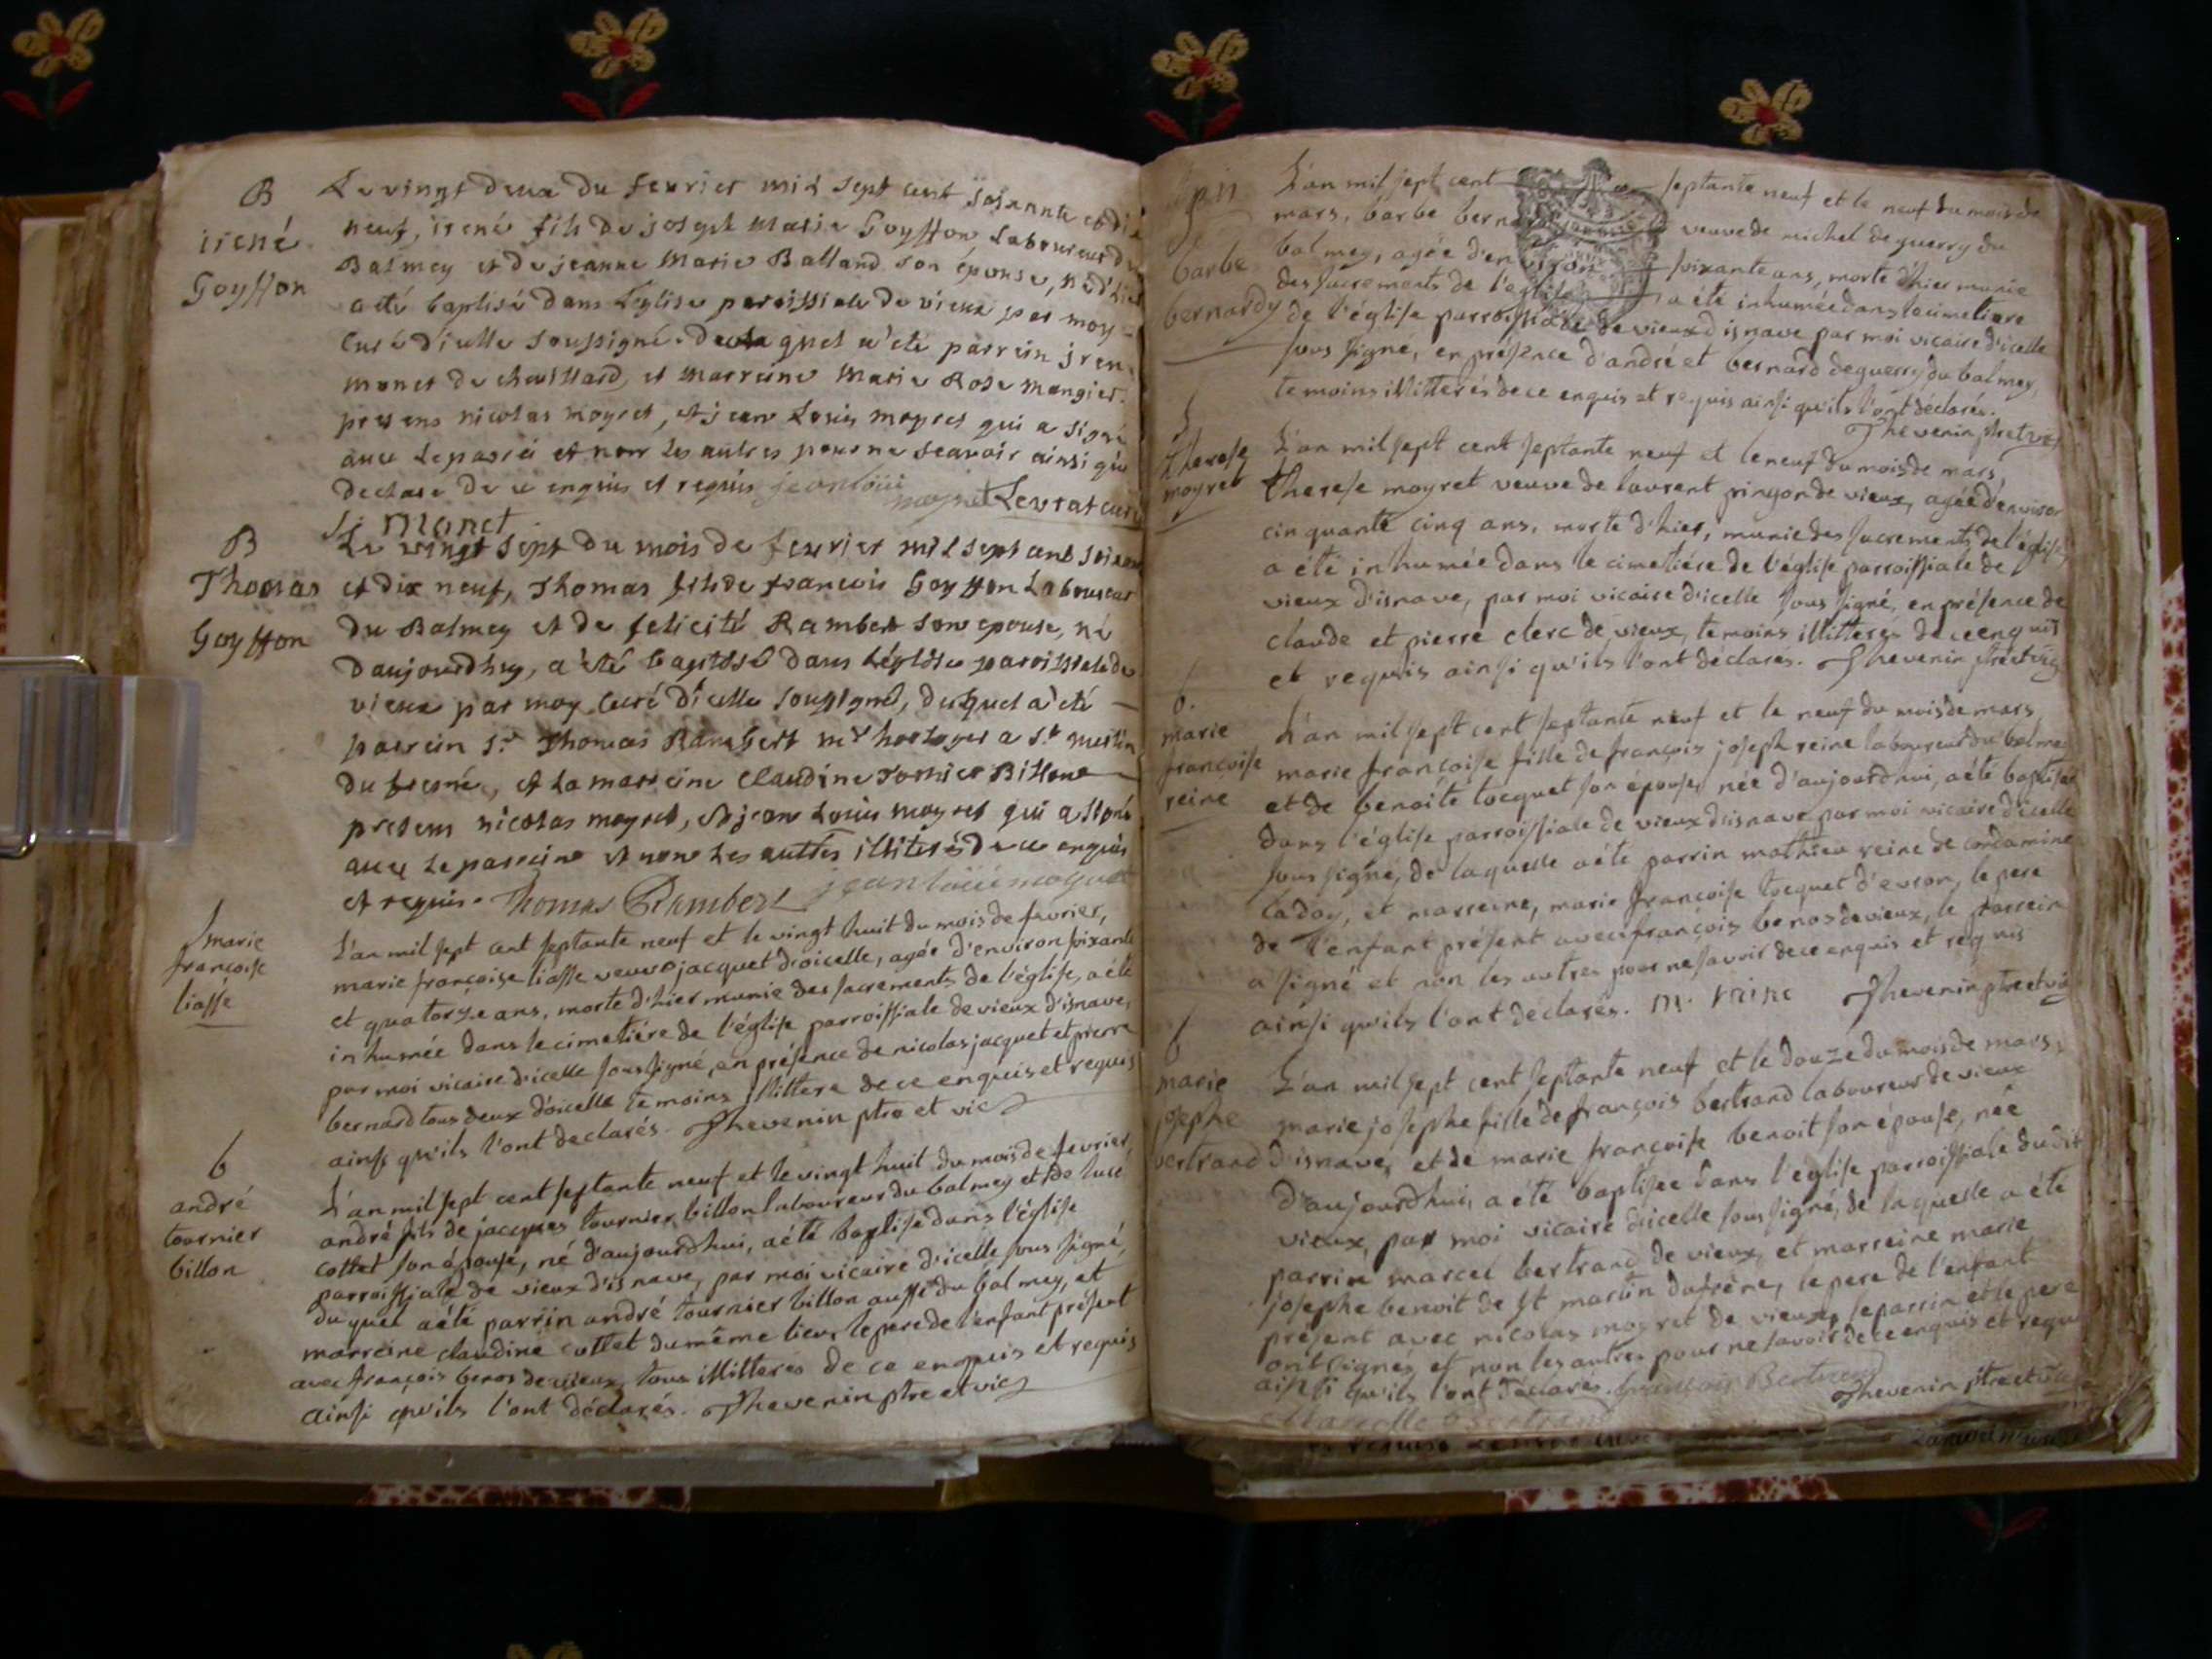 B
irené
Goyffon
Le vingt deux du fevrier mil sept cent soixante et dix
neuf, irené fils de joseph Marie Goyffon Laboureur du
Balmey et de jeanne Marie Balland son épouse, né d'hier
a été baptisé dans Leglise paroissiale de vieux par moy
Curé d'icelle soussigné. duquel a été parrein jren
monet de cheuillard, et Marreine Marie Rose mangier.
presens nicolas moyret, et jean Louis moyret qui a signé
avec Le parrein et non Les autres pour ne scauoir ainsi que
declaré de ce enquis et requis jean loüi
moyret Levrat curé
ji monet
B
Thomas
Goyffon
Le vingt sept du mois de fevrier mil sept cent soixante
et dix neuf, Thomas fils de francois Goyffon Laboureur
du Balmey et de felicité Rambert son epouse, né
daujourdhuy, a été baptisé dans Léglise paroissiale de
vieux par moy Curé d'icelle soussigné, duquel a été
parrein Sr Thomas Rambert me horloger a St martin
du fresne, et La marreine Claudine Tornier Billon
presens nicolas moyret, et jean Louis moyret qui a signé
avec Le parreine et non Les autres illiterés de ce enquis
et requis. Thomas Rambert jean loüi moyret
f
marie
françoise
liasse
L'an mil sept cent septante neuf et le vingt huit du mois de fevrier,
marie françoise liasse veuve jacquet d'icelle, agée d'environ soixante
et quatorze ans, morte d'hier munie des sacrements de l'église, a été
inhumée dans le cimetière de l'église parroissiale de vieux d'isnave,
par moi vicaire d'icelle sous signé, en présence de nicolas jacquet et pierre
bernard tous deux d'icelle temoins illittere de ce enquis et requis
ainsi qu'ils l'ont declarés. Thevenin ptre et vic
b
andré
tournier
billon
L'an mil sept cent septante neuf et le vingt huit du mois de fevrier
andré fils de jacques tournier billon laboureur du balmey et de luce
cottet son épouse, né d'aujourdhui, a été baptisé dans l'église
parroissiale de vieux d'isnave, par moi vicaire d'icelle sous signé,
du quel a été parrin andré tournier billon aussi du balmey, et
marreine claudine cottet du même lieu, le pere de l'enfant présent
avec françois benos de vieux, tous illitterés de ce enquis et requis
ainsi qu'ils l'ont déclarés. Thevenin ptre et vic
barbe
bernardy
L'an mil sept cent septante neuf et le neuf du mois de
mars, barbe bernardy veuve de michel deguerry du
balmey, agée d'environ soixante ans, morte d'hier munie
des sacrements de l'église, a été inhumée dans le cimetiere
de l'église parroissiale de vieux d'isnave par moi vicaire d'icelle
sous signé, en présence d'andré et bernard deguerry du balmey,
temoins illitterés de ce enquis et requis ainsi qu'ils l'ont déclarés.
Thevenin ptre et vic
f
therese
moyret
L'an mil sept cent septante neuf et le neuf du mois de mars,
therese moyret veuve de laurent pingon de vieux, agée d'environ
cinquante cinq ans, morte d'hier, munie des sacrements de l'église,
a été inhumée dans le cimetiére de l'église parroissiale de
vieux d'isnave, par moi vicaire d'icelle sous signé, en présence de
claude et pierre clerc de vieux, temoins illitterés de ce enquis
et requis ainsi qu'ils l'ont déclarés. Thevenin ptre et vic
b.
marie
françoise
reine
L'an mil sept cent septante neuf et le neuf du mois de mars
marie françoise fille de françois joseph reine laboureur du balmey
et de benoite tocquet son épouse, née d'aujourdhui, a été baptisée
dans l'église parroissiale de vieux d'isnave par moi vicaire d'icelle
sous signé, de laquelle a été parrin mathieu reine de condamine
la doy, et marreine, marie françoise tocquet d'evron, le pere
de l'enfant présent avec françois benos de vieux, le parrein
a signé et non les autres pour ne savoir de ce enquis et requis
ainsi qu'ils l'ont déclarés. m. reine Thevenin ptre et vic
b
marie
josephe
bertrand
L'an mil sept cent septante neuf et le douze du mois de mars,
marie josephe fille de françois bertrand laboureur de vieux
d'isnave, et de marie françoise benoit son épouse, née
d'aujourdhui, a été baptisée dans l'église parroissiale du dit
vieux, par moi vicaire d'icelle sous signé, de laquelle a été
parrin marcel bertrand de vieux, et marreine marie
josephe benoit de St martin dufrêne, le pere de l'enfant
présent avec nicolas moyret de vieux, le parrin et le pere
ont signés et non les autres pour ne savoir de ce enquis et requis
ainsi qu'ils l'ont déclarés. françois Bertrand
Thevenin ptre et vic
Marcelle Bertrand